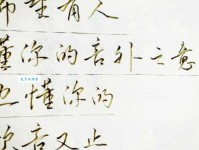 希望有人
懂你的言外之意
也懂你的
欲言又止